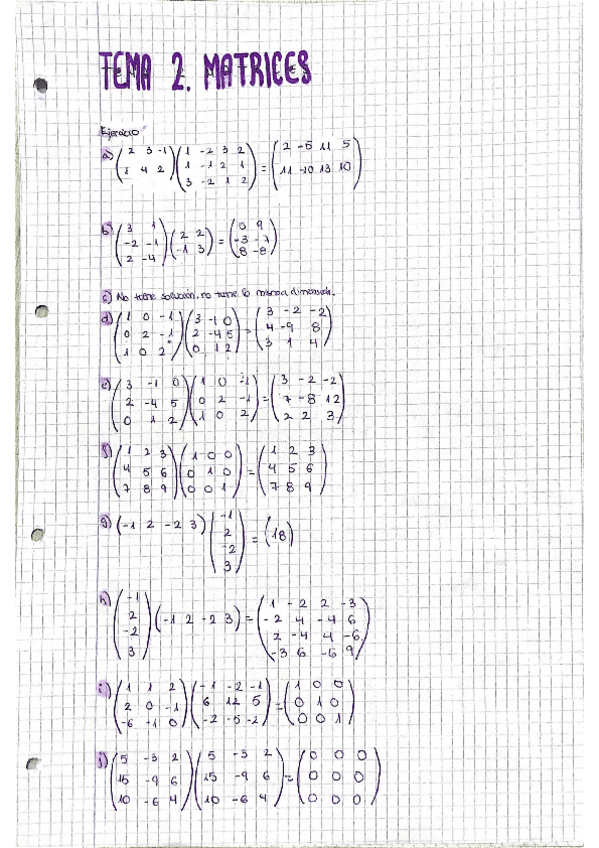 TEMA 2. MATRICES
Ejercicio
a) (2 3 -1 / 1 4 2) (1 -2 3 2 / 1 -1 2 1 / 3 -2 1 2) = (2 -5 11 5 / 11 -10 13 10)
b) (3 1 / -2 -1 / 2 -4) (2 2 / -1 3) = (5 9 / -3 -7 / 8 -8)
c) No tiene solución, no tiene la misma dimensión.
d) (1 0 -1 / 0 2 -1 / 1 0 2) (3 -1 0 / 2 -4 5 / 0 1 2) = (3 -2 -2 / 4 -9 8 / 3 1 4)
e) (3 -1 0 / 2 -4 5 / 0 1 2) (1 0 -1 / 0 2 -1 / 1 0 2) = (3 -2 -2 / 7 -8 12 / 2 2 3)
f) (1 2 3 / 4 5 6 / 7 8 9) (1 0 0 / 0 1 0 / 0 0 1) = (1 2 3 / 4 5 6 / 7 8 9)
g) (-1 2 -2 3) (-1 / 2 / -2 / 3) = (18)
h) (-1 / 2 / -2 / 3) (-1 2 -2 3) = (1 -2 2 -3 / -2 4 -4 6 / 2 -4 4 -6 / -3 6 -6 9)
i) (1 1 2 / 2 0 -1 / -6 -1 0) (-1 -2 -1 / 6 12 5 / -2 -5 -2) = (1 0 0 / 0 1 0 / 0 0 1)
j) (5 -3 2 / 15 -9 6 / 10 -6 4) (5 -3 2 / 15 -9 6 / 10 -6 4) = (0 0 0 / 0 0 0 / 0 0 0)